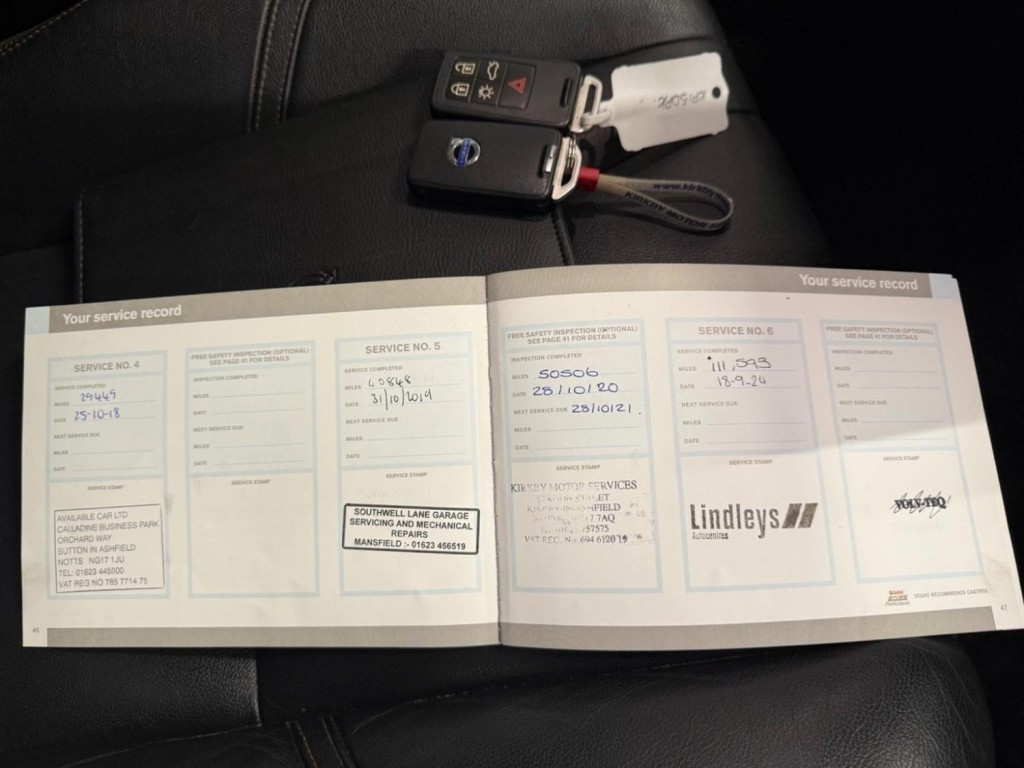 KIRKBY MOTOR
Your service record
SERVICE NO. 4
SERVICE COMPLETED
MILES 29449
DATE 25-10-18
NEXT SERVICE DUE
MILES
DATE
SERVICE STAMP
AVAILABLE CAR LTD
CALLADINE BUSINESS PARK
ORCHARD WAY
SUTTON IN ASHFIELD
NOTTS NG17 1JU
TEL: 01623 445800
VAT REG NO 785 7714 75
FREE SAFETY INSPECTION (OPTIONAL)
SEE PAGE 41 FOR DETAILS
INSPECTION COMPLETED
MILES
DATE
NEXT SERVICE DUE
MILES
DATE
SERVICE STAMP
SERVICE NO. 5
SERVICE COMPLETED
MILES 40848
DATE 31/10/2019
NEXT SERVICE DUE
MILES
DATE
SERVICE STAMP
SOUTHWELL LANE GARAGE
SERVICING AND MECHANICAL
REPAIRS
MANSFIELD :- 01623 456519
46
Your service record
FREE SAFETY INSPECTION (OPTIONAL)
SEE PAGE 41 FOR DETAILS
INSPECTION COMPLETED
MILES 50506
DATE 28/10/20
NEXT SERVICE DUE 28/10/21.
MILES
DATE
SERVICE STAMP
KIRKBY MOTOR SERVICES
STATION STREET
VAT REG. No: 694 6120 19
SERVICE NO. 6
SERVICE COMPLETED
MILES 111,593
DATE 18-9-24
NEXT SERVICE DUE
MILES
DATE
SERVICE STAMP
Lindleys
Autocentres
FREE SAFETY INSPECTION (OPTIONAL)
SEE PAGE 41 FOR DETAILS
INSPECTION COMPLETED
MILES
DATE
NEXT SERVICE DUE
MILES
DATE
SERVICE STAMP
VOLV-TEQ
Castrol
EDGE
PROFESSIONAL
VOLVO RECOMMENDS CASTROL
47